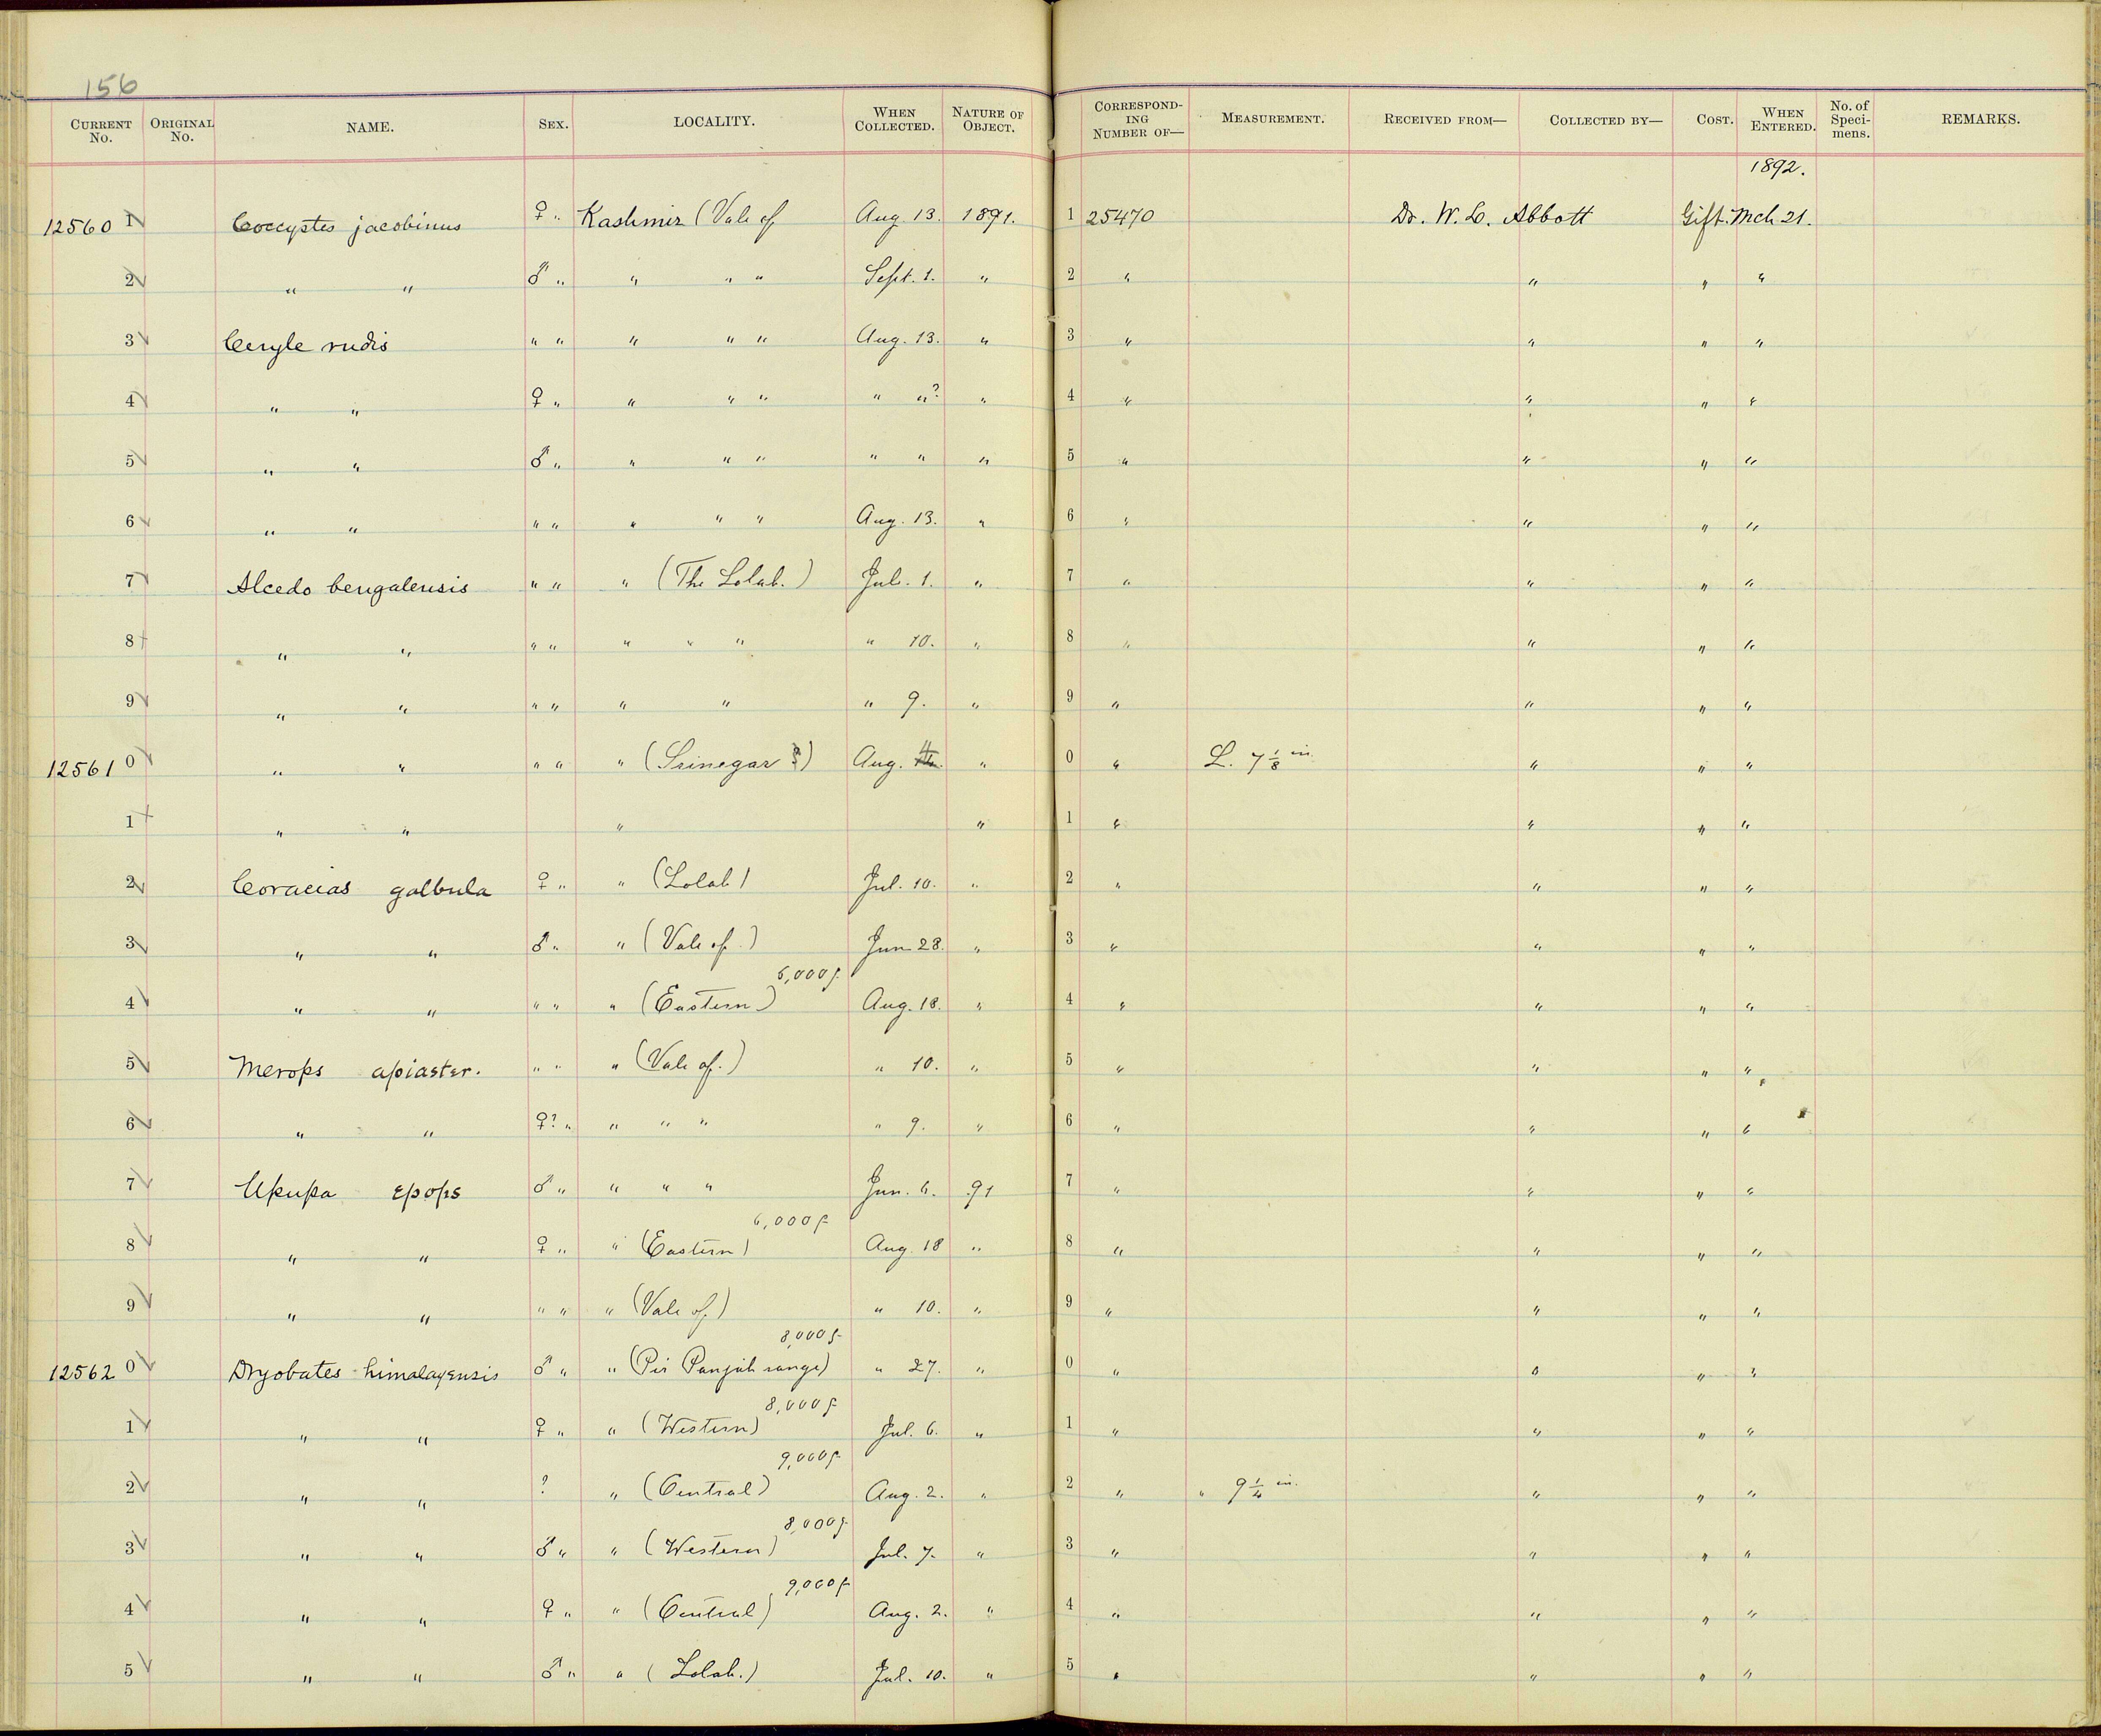 156
CURRENT No. ORIGINAL No. NAME. SEX. LOCALITY. WHEN COLLECTED. NATURE OF OBJECT. CORRESPONDING NUMBER OF— MEASUREMENT. RECEIVED FROM— COLLECTED BY— COST. WHEN ENTERED. No. of Specimens. REMARKS.
1892.
12560 1 Coccystes jacobinus ♀ " Kashmir (Vale of Aug. 13. 1891. 1 25470 Dr. W. L. Abbott Gift. Mch 21.
2 " " ♂ " " " " Sept. 1. " 2 " " " "
3 Ceryle rudis " " " " " Aug. 13. " 3 " " " "
4 " " ♀ " " " " " "? " 4 " " " "
5 " " ♂ " " " " " " " 5 " " " "
6 " " " " " " " Aug. 13. " 6 " " " "
7 Alcedo bengalensis " " " (The Lolab.) Jul. 1. " 7 " " " "
8 " " " " " " " " 10. " 8 " " " "
9 " " " " " " " 9. " 9 " " " "
12561 0 " " " " " (Srinegar ?) Aug. " 0 " L. 7 1/8 in. " " "
1 " " " " 1 " " " "
2 Coracias galbula ♀ " " (Lolab) Jul. 10. " 2 " " " "
3 " " ♂ " " (Vale of.) Jun 28. " 3 " " " "
4 " " " " " (Eastern) 6,000 f. Aug. 18. " 4 " " " "
5 Merops apiaster. " " " (Vale of.) " 10. " 5 " " " "
6 " " ♀? " " " " " 9. " 6 " " " "
7 Upupa epops ♂ " " " " Jun. 6. 91 7 " " " "
8 " " ♀ " " (Eastern) 6,000 f. Aug. 18 " 8 " " " "
9 " " " " " (Vale of) " 10. " 9 " " " "
12562 0 Dryobates himalayensis ♂ " " (Pir Panjab range) 8,000 f. " 27. " 0 " " " "
1 " " ♀ " " (Western) 8,000 f. Jul. 6. " 1 " " " "
2 " " ? " (Central) 9,000 f. Aug. 2. " 2 " " 9 1/4 in. " " "
3 " " ♂ " " (Western) 8,000 f. Jul. 7. " 3 " " " "
4 " " ♀ " " (Central) 9,000 f. Aug. 2. " 4 " " " "
5 " " ♂ " " (Lolab.) Jul. 10. " 5 " " " "